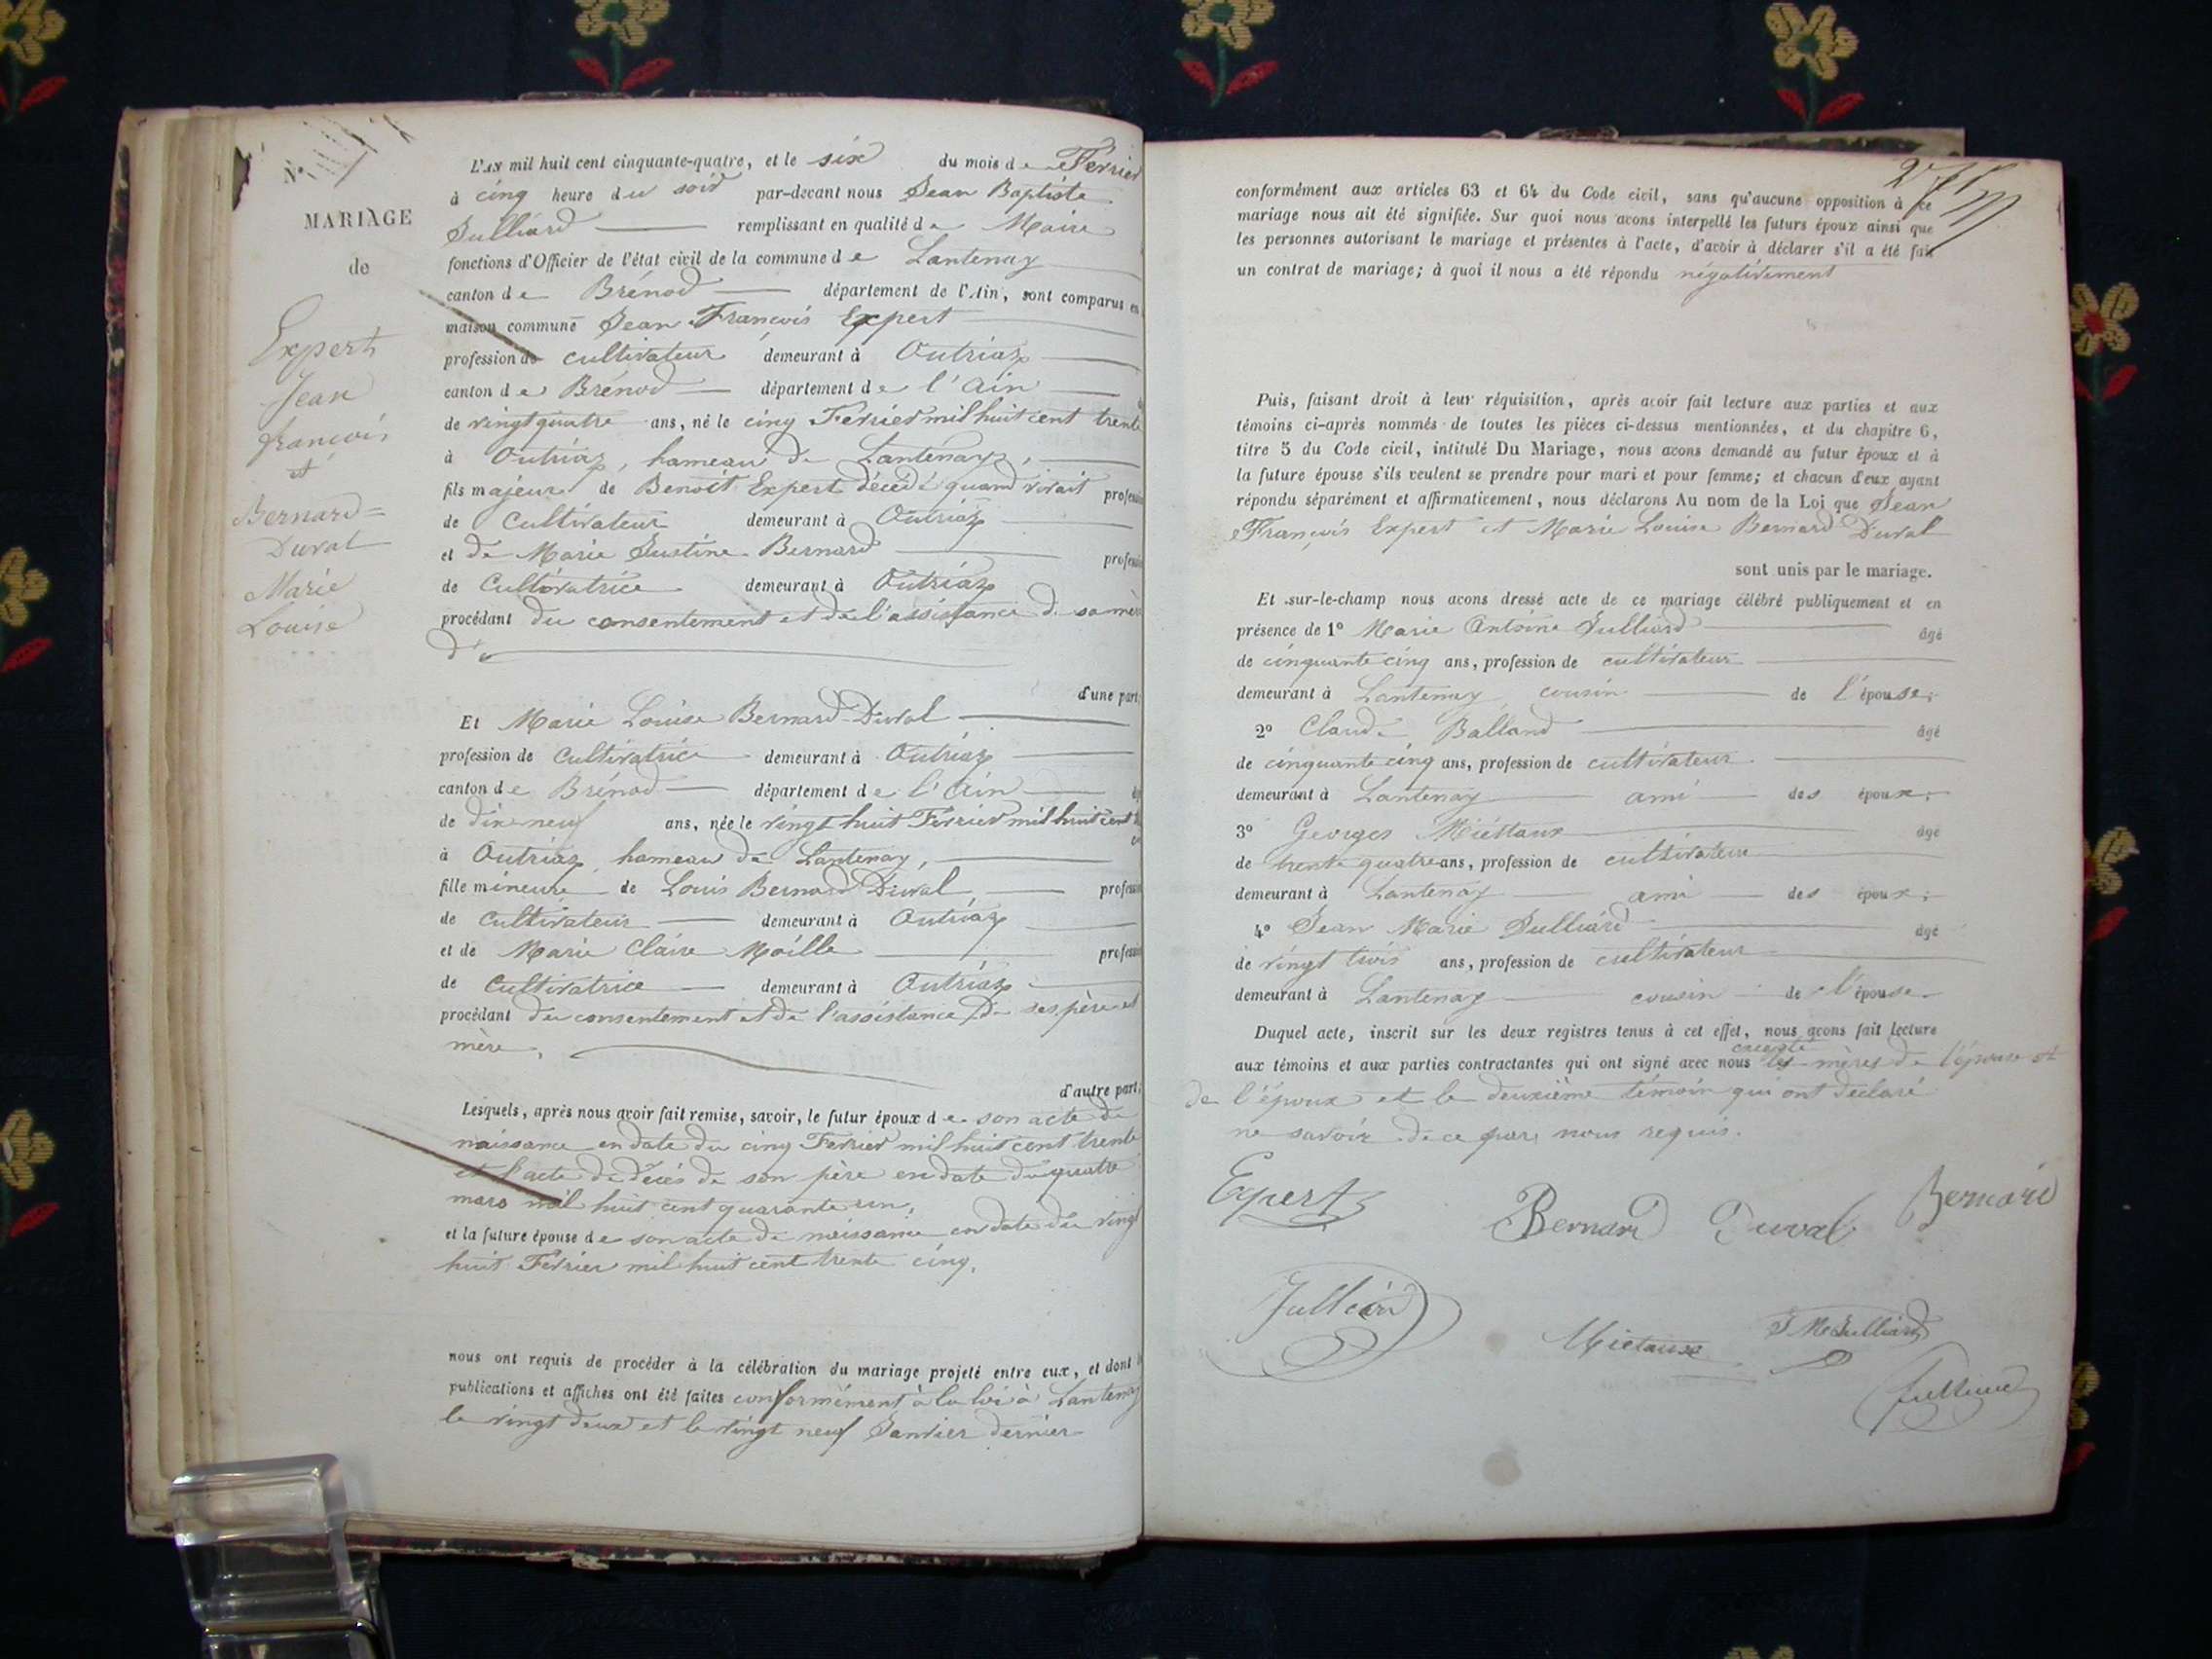 N°
MARIAGE
de
Expert
Jean
françois
et
Bernard=
Duval
Marie
Louise
L'AN mil huit cent cinquante-quatre, et le six du mois de Fevrier
à cinq heure du soir par-devant nous Jean Baptiste
Julliard remplissant en qualité de Maire
fonctions d'Officier de l'état civil de la commune de Lantenay
canton de Brénod département de l'Ain, sont comparus en
maison commune Jean François Expert
profession de cultivateur demeurant à Outriaz
canton de Brénod département de l'Ain
de vingt quatre ans, né le cinq Fevrier mil huit cent trente
à Outriaz, hameau de Lantenay,
fils majeur de Benoît Expert décédé quand vivait profession
de Cultivateur demeurant à Outriaz
et de Marie Justine Bernard
de Cultivatrice demeurant à Outriaz
procédant du consentement et de l'assistance de sa mère
d'une part;
Et Marie Louise Bernard-Duval
profession de Cultivatrice demeurant à Outriaz
canton de Brénod département de l'Ain
de dix neuf ans, née le vingt huit Fevrier mil huit cent
à Outriaz hameau de Lantenay,
fille mineure de Louis Bernard Duval
de Cultivateur demeurant à Outriaz
et de Marie Claire Moille
de Cultivatrice demeurant à Outriaz
procédant du consentement et de l'assistance de ses père et
mère,
d'autre part;
Lesquels, après nous avoir fait remise, savoir, le futur époux de son acte de
naissance en date du cinq Fevrier mil huit cent trente
et l'acte de décès de son père en date du quatre
mars mil huit cent quarante un,
et la future épouse de son acte de naissance en date du vingt
huit Février mil huit cent trente cinq,
nous ont requis de procéder à la célébration du mariage projeté entre eux, et dont
publications et affiches ont été faites conformément à la loi à Lantenay
le vingt deux et le vingt neuf Janvier dernier
conformément aux articles 63 et 64 du Code civil, sans qu'aucune opposition à ce
mariage nous ait été signifiée. Sur quoi nous avons interpellé les futurs époux ainsi que
les personnes autorisant le mariage et présentes à l'acte, d'avoir à déclarer s'il a été fait
un contrat de mariage; à quoi il nous a été répondu négativement
Puis, faisant droit à leur réquisition, après avoir fait lecture aux parties et aux
témoins ci-après nommés de toutes les pièces ci-dessus mentionnées, et du chapitre 6,
titre 5 du Code civil, intitulé Du Mariage, nous avons demandé au futur époux et à
la future épouse s'ils veulent se prendre pour mari et pour femme; et chacun d'eux ayant
répondu séparément et affirmativement, nous déclarons Au nom de la Loi que Jean
François Expert et Marie Louise Bernard Duval
sont unis par le mariage.
Et sur-le-champ nous avons dressé acte de ce mariage célébré publiquement et en
présence de 1° Marie Antoine Julliard âgé
de cinquante cinq ans, profession de cultivateur
demeurant à Lantenay cousin de l'épouse;
2° Claude Balland âgé
de cinquante cinq ans, profession de cultivateur
demeurant à Lantenay ami des époux;
3° Georges Miéttaux âgé
de trente quatre ans, profession de cultivateur
demeurant à Lantenay ami des époux;
4° Jean Marie Julliard âgé
de vingt trois ans, profession de cultivateur
demeurant à Lantenay cousin de l'épouse
Duquel acte, inscrit sur les deux registres tenus à cet effet, nous avons fait lecture
aux témoins et aux parties contractantes qui ont signé avec nous excepté les mères de l'épouse et
de l'époux et le deuxième témoin qui ont déclaré
ne savoir de ce par nous requis.
Expert
Bernard Duval
Bernard
Julliard
Mietaux
J M Julliard